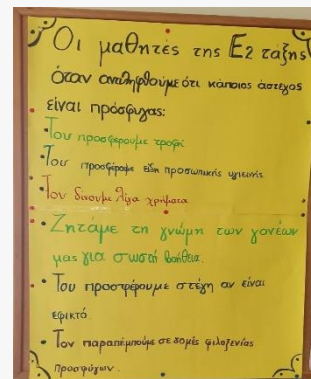 Οι μαθητές της Ε2 τάξης
όταν αντιληφθούμε ότι κάποιος άστεγος
είναι πρόσφυγας:
•Του προσφέρουμε τροφή
•Του προσφέρουμε είδη προσωπικής υγιεινής
•Του δίνουμε λίγα χρήματα
•Ζητάμε τη γνώμη των γονέων
μας για σωστή βοήθεια.
•Του προσφέρουμε στέγη αν είναι
εφικτό
•Τον παραπέμπουμε σε δομές φιλοξενίας
προσφύγων.